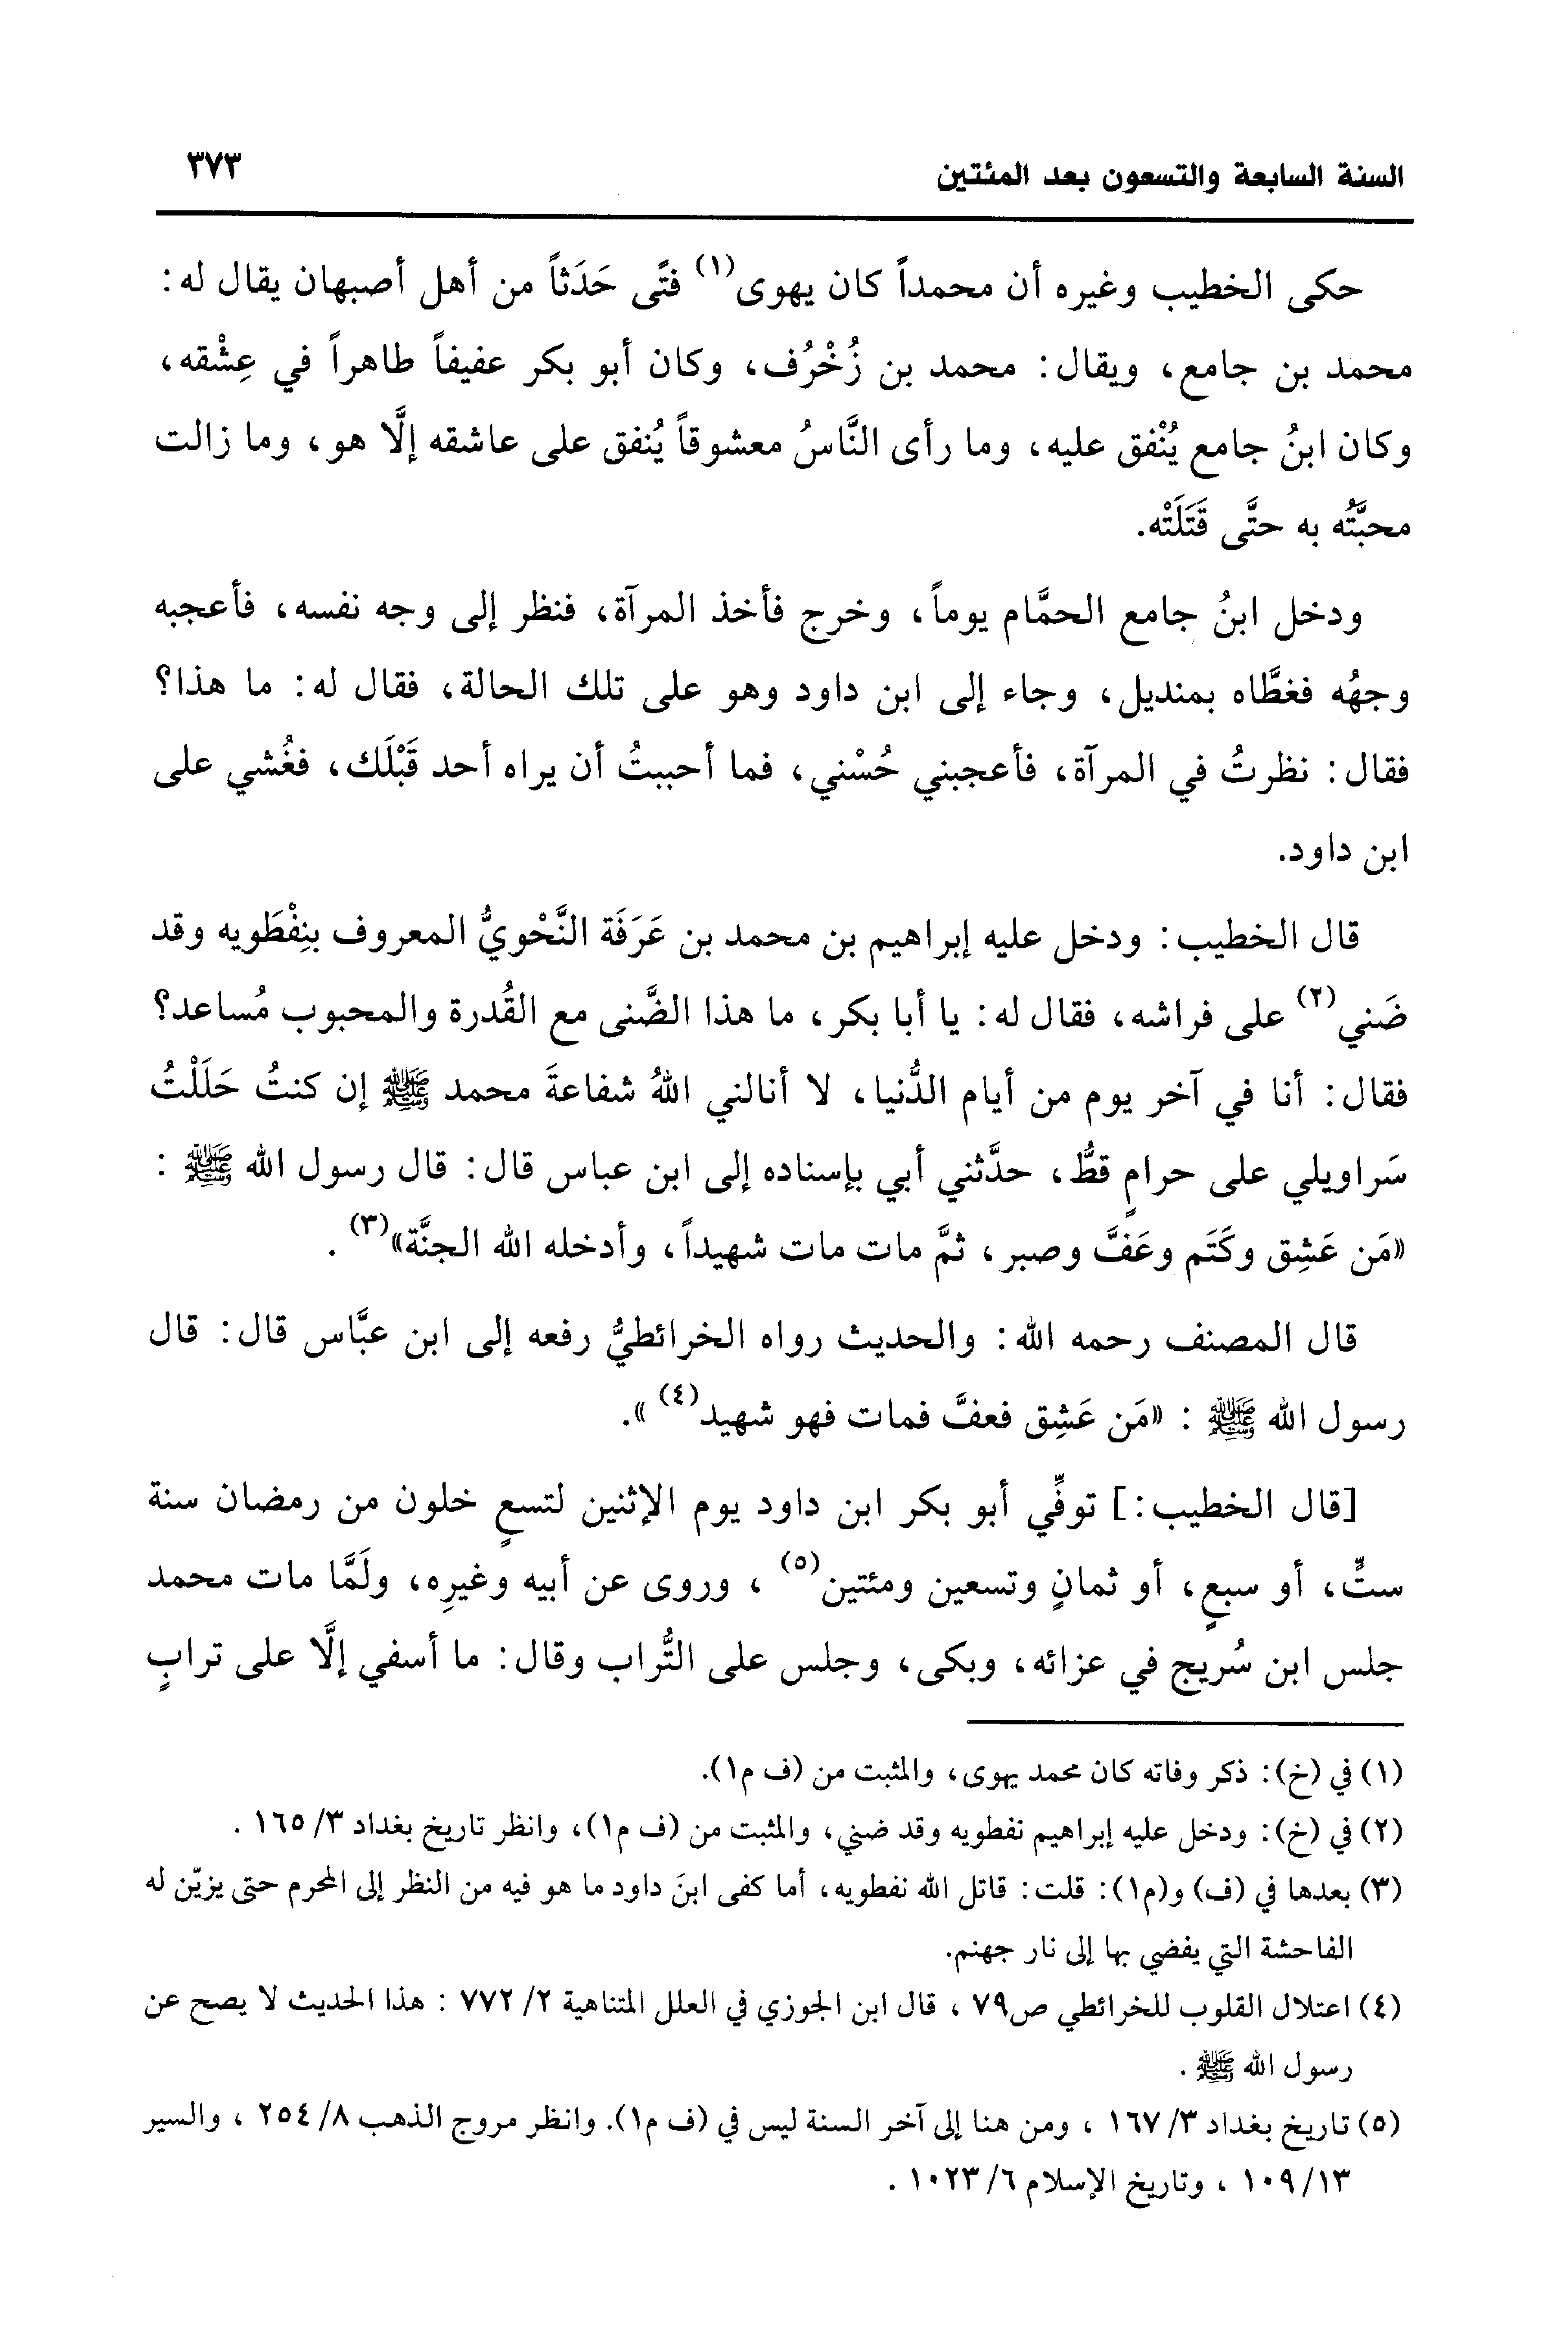 السنة السابعة والتسعون بعد المئتين ٣٧٣
حكى الخطيب وغيره أن محمداً كان يهوى(١) فتًى حَدَثاً من أهل أصبهان يقال له:
محمد بن جامع، ويقال: محمد بن زُخْرُف، وكان أبو بكر عفيفاً طاهراً في عِشْقه،
وكان ابنُ جامع يُنْفق عليه، وما رأى النَّاسُ معشوقاً يُنفق على عاشقه إلَّا هو، وما زالت
محبَّتُه به حتَّى قَتَلَتْه.
ودخل ابنُ جامع الحمَّام يوماً، وخرج فأخذ المرآة، فنظر إلى وجه نفسه، فأعجبه
وجهُه فغطَّاه بمنديل، وجاء إلى ابن داود وهو على تلك الحالة، فقال له: ما هذا؟
فقال: نظرتُ في المرآة، فأعجبني حُسْني، فما أحببتُ أن يراه أحد قَبْلَك، فغُشي على
ابن داود.
قال الخطيب: ودخل عليه إبراهيم بن محمد بن عَرَفَة النَّحْويُّ المعروف بنِفْطَويه وقد
ضَني(٢) على فراشه، فقال له: يا أبا بكر، ما هذا الضَّنى مع القُدرة والمحبوب مُساعد؟
فقال: أنا في آخر يوم من أيام الدُّنيا، لا أنالني اللهُ شفاعةَ محمد ﷺ إن كنتُ حَلَلْتُ
سَراويلي على حرامٍ قطُّ، حدَّثني أبي بإسناده إلى ابن عباس قال: قال رسول الله ﷺ :
«مَن عَشِق وكَتَم وعَفَّ وصبر، ثمَّ مات مات شهيداً، وأدخله الله الجنَّة»(٣) .
قال المصنف رحمه الله: والحديث رواه الخرائطيُّ رفعه إلى ابن عبَّاس قال: قال
رسول الله ﷺ : «مَن عَشِق فعفَّ فمات فهو شهيد(٤) ».
[قال الخطيب:] توفِّي أبو بكر ابن داود يوم الإثنين لتسعٍ خلون من رمضان سنة
ستٍّ، أو سبعٍ، أو ثمانٍ وتسعين ومئتين(٥) ، وروى عن أبيه وغيرِه، ولَمَّا مات محمد
جلس ابن سُريج في عزائه، وبكى، وجلس على التُّراب وقال: ما أسفي إلَّا على ترابٍ
(١) في (خ): ذكر وفاته كان محمد يهوى، والمثبت من (ف م١).
(٢) في (خ): ودخل عليه إبراهيم نفطويه وقد ضني، والمثبت من (ف م١)، وانظر تاريخ بغداد ٣/ ١٦٥ .
(٣) بعدها في (ف) و(م١): قلت: قاتل الله نفطويه، أما كفى ابنَ داود ما هو فيه من النظر إلى المحرم حتى يزيّن له
الفاحشة التي يفضي بها إلى نار جهنم.
(٤) اعتلال القلوب للخرائطي ص٧٩ ، قال ابن الجوزي في العلل المتناهية ٢/ ٧٧٢ : هذا الحديث لا يصح عن
رسول الله ﷺ .
(٥) تاريخ بغداد ٣/ ١٦٧ ، ومن هنا إلى آخر السنة ليس في (ف م١). وانظر مروج الذهب ٨/ ٢٥٤ ، والسير
١٣/ ١٠٩ ، وتاريخ الإسلام ٦/ ١٠٢٣ .